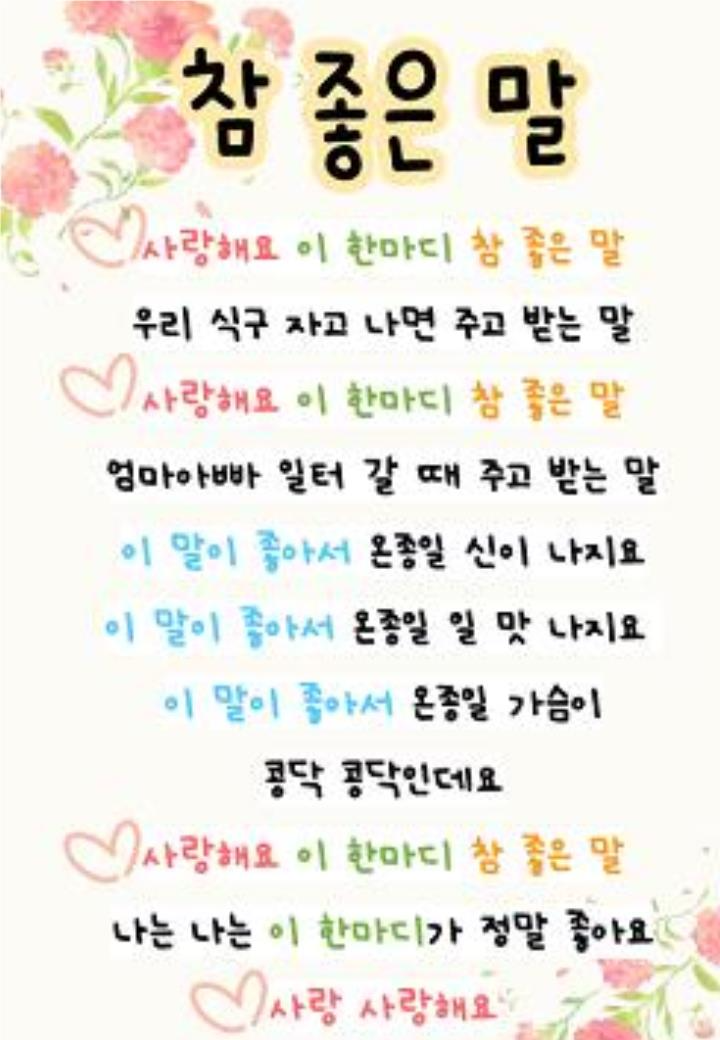 참 좋은 말
사랑해요 이 한마디 참 좋은 말
우리 식구 자고 나면 주고 받는 말
사랑해요 이 한마디 참 좋은 말
엄마아빠 일터 갈 때 주고 받는 말
이 말이 좋아서 온종일 신이 나지요
이 말이 좋아서 온종일 일 맛 나지요
이 말이 좋아서 온종일 가슴이
콩닥 콩닥인데요
사랑해요 이 한마디 참 좋은 말
나는 나는 이 한마디가 정말 좋아요
사랑 사랑해요